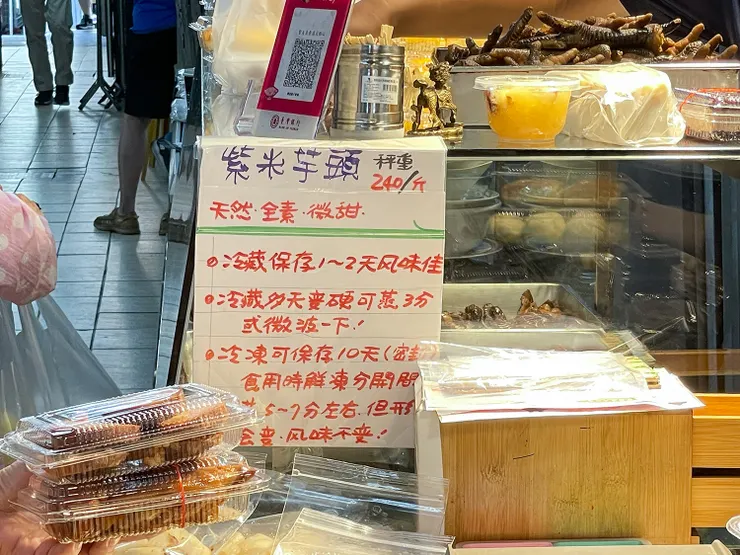 紫米芋頭 秤重
240/斤
天然·全素·微甜.
冷藏保存1～2天风味佳
冷藏多天变硬可蒸3分
或微波一下!
冷凍可保存10天(密封
食用時解凍分開
5~7分左右.但形
会变.风味不变!